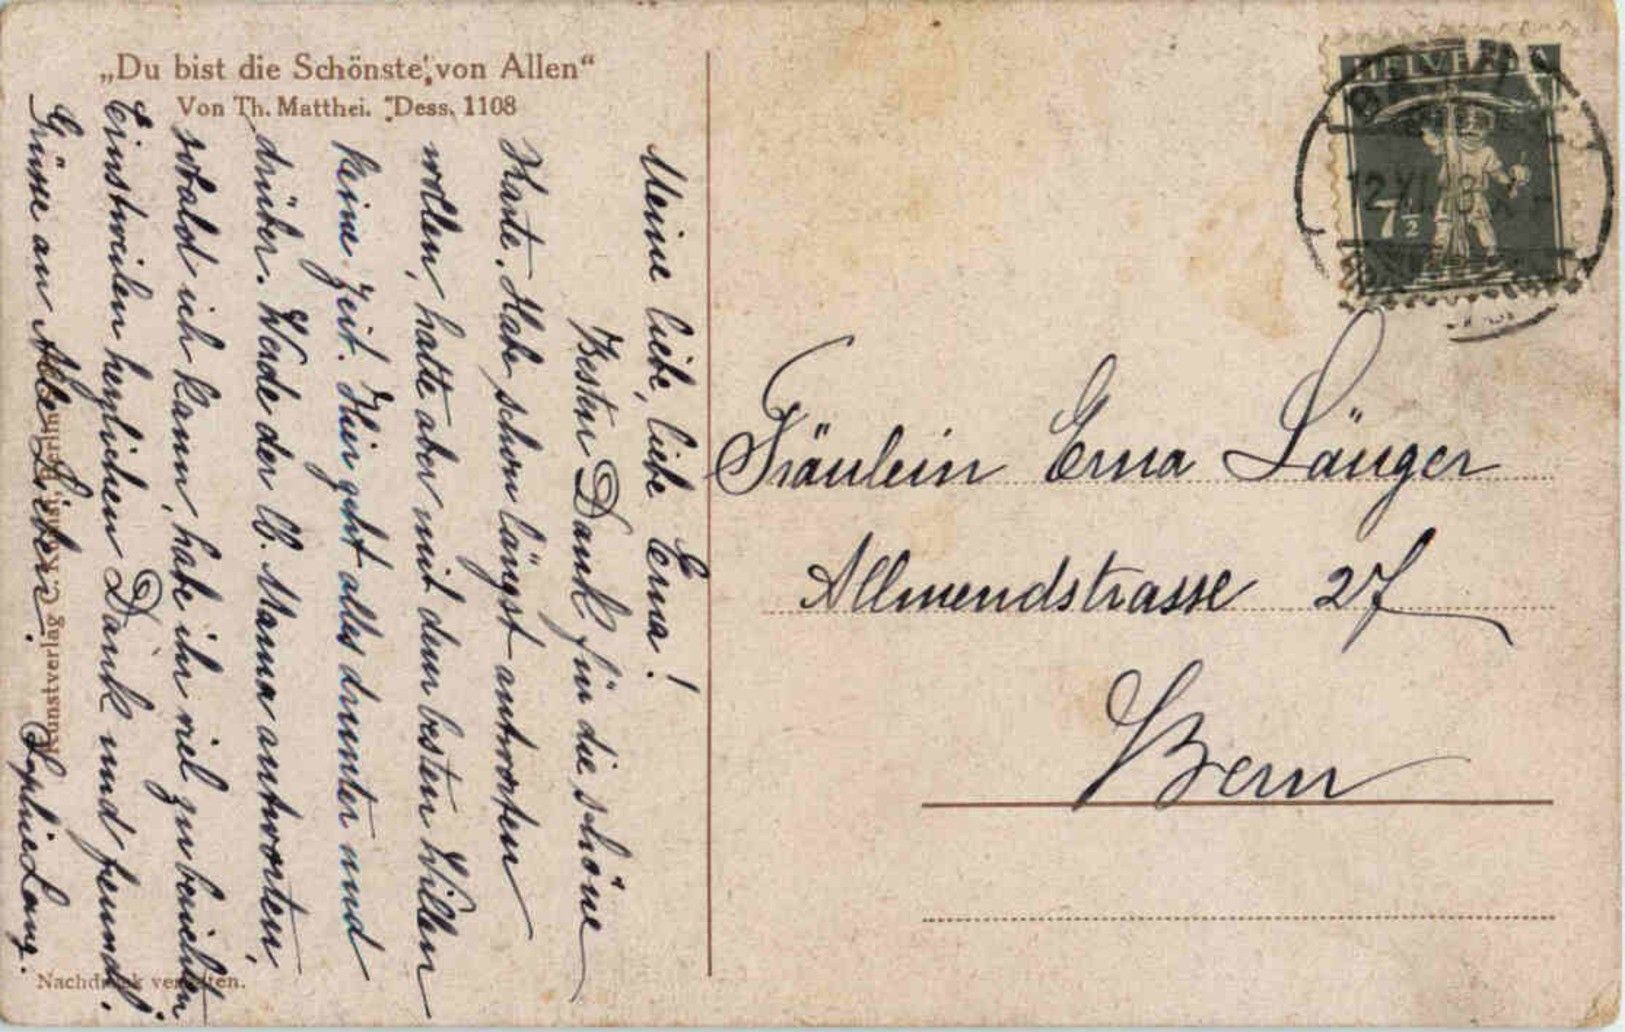 „Du bist die Schönste von Allen“
Von Th. Matthei. Dess. 1108
Meine liebe, liebe Erna!
Besten Dank für die schöne
Karte. Habe schon längst antworten
wollen, hatte aber mit dem besten Willen
keine Zeit. Hier geht alles drunter und
drüber. Werde der lb. Mama antworten,
sobald ich kann, habe ihr viel zu berichten.
Einstweilen herzlichen Dank und freundl.
Grüsse an Alle Lieben.
Sophie Lang.
Kunstverlag C. Berlin
Nachdruck verboten.
HELVETIA
7½
12.XI.
Fräulein Erna Länger
Allmendstrasse 27
Bern